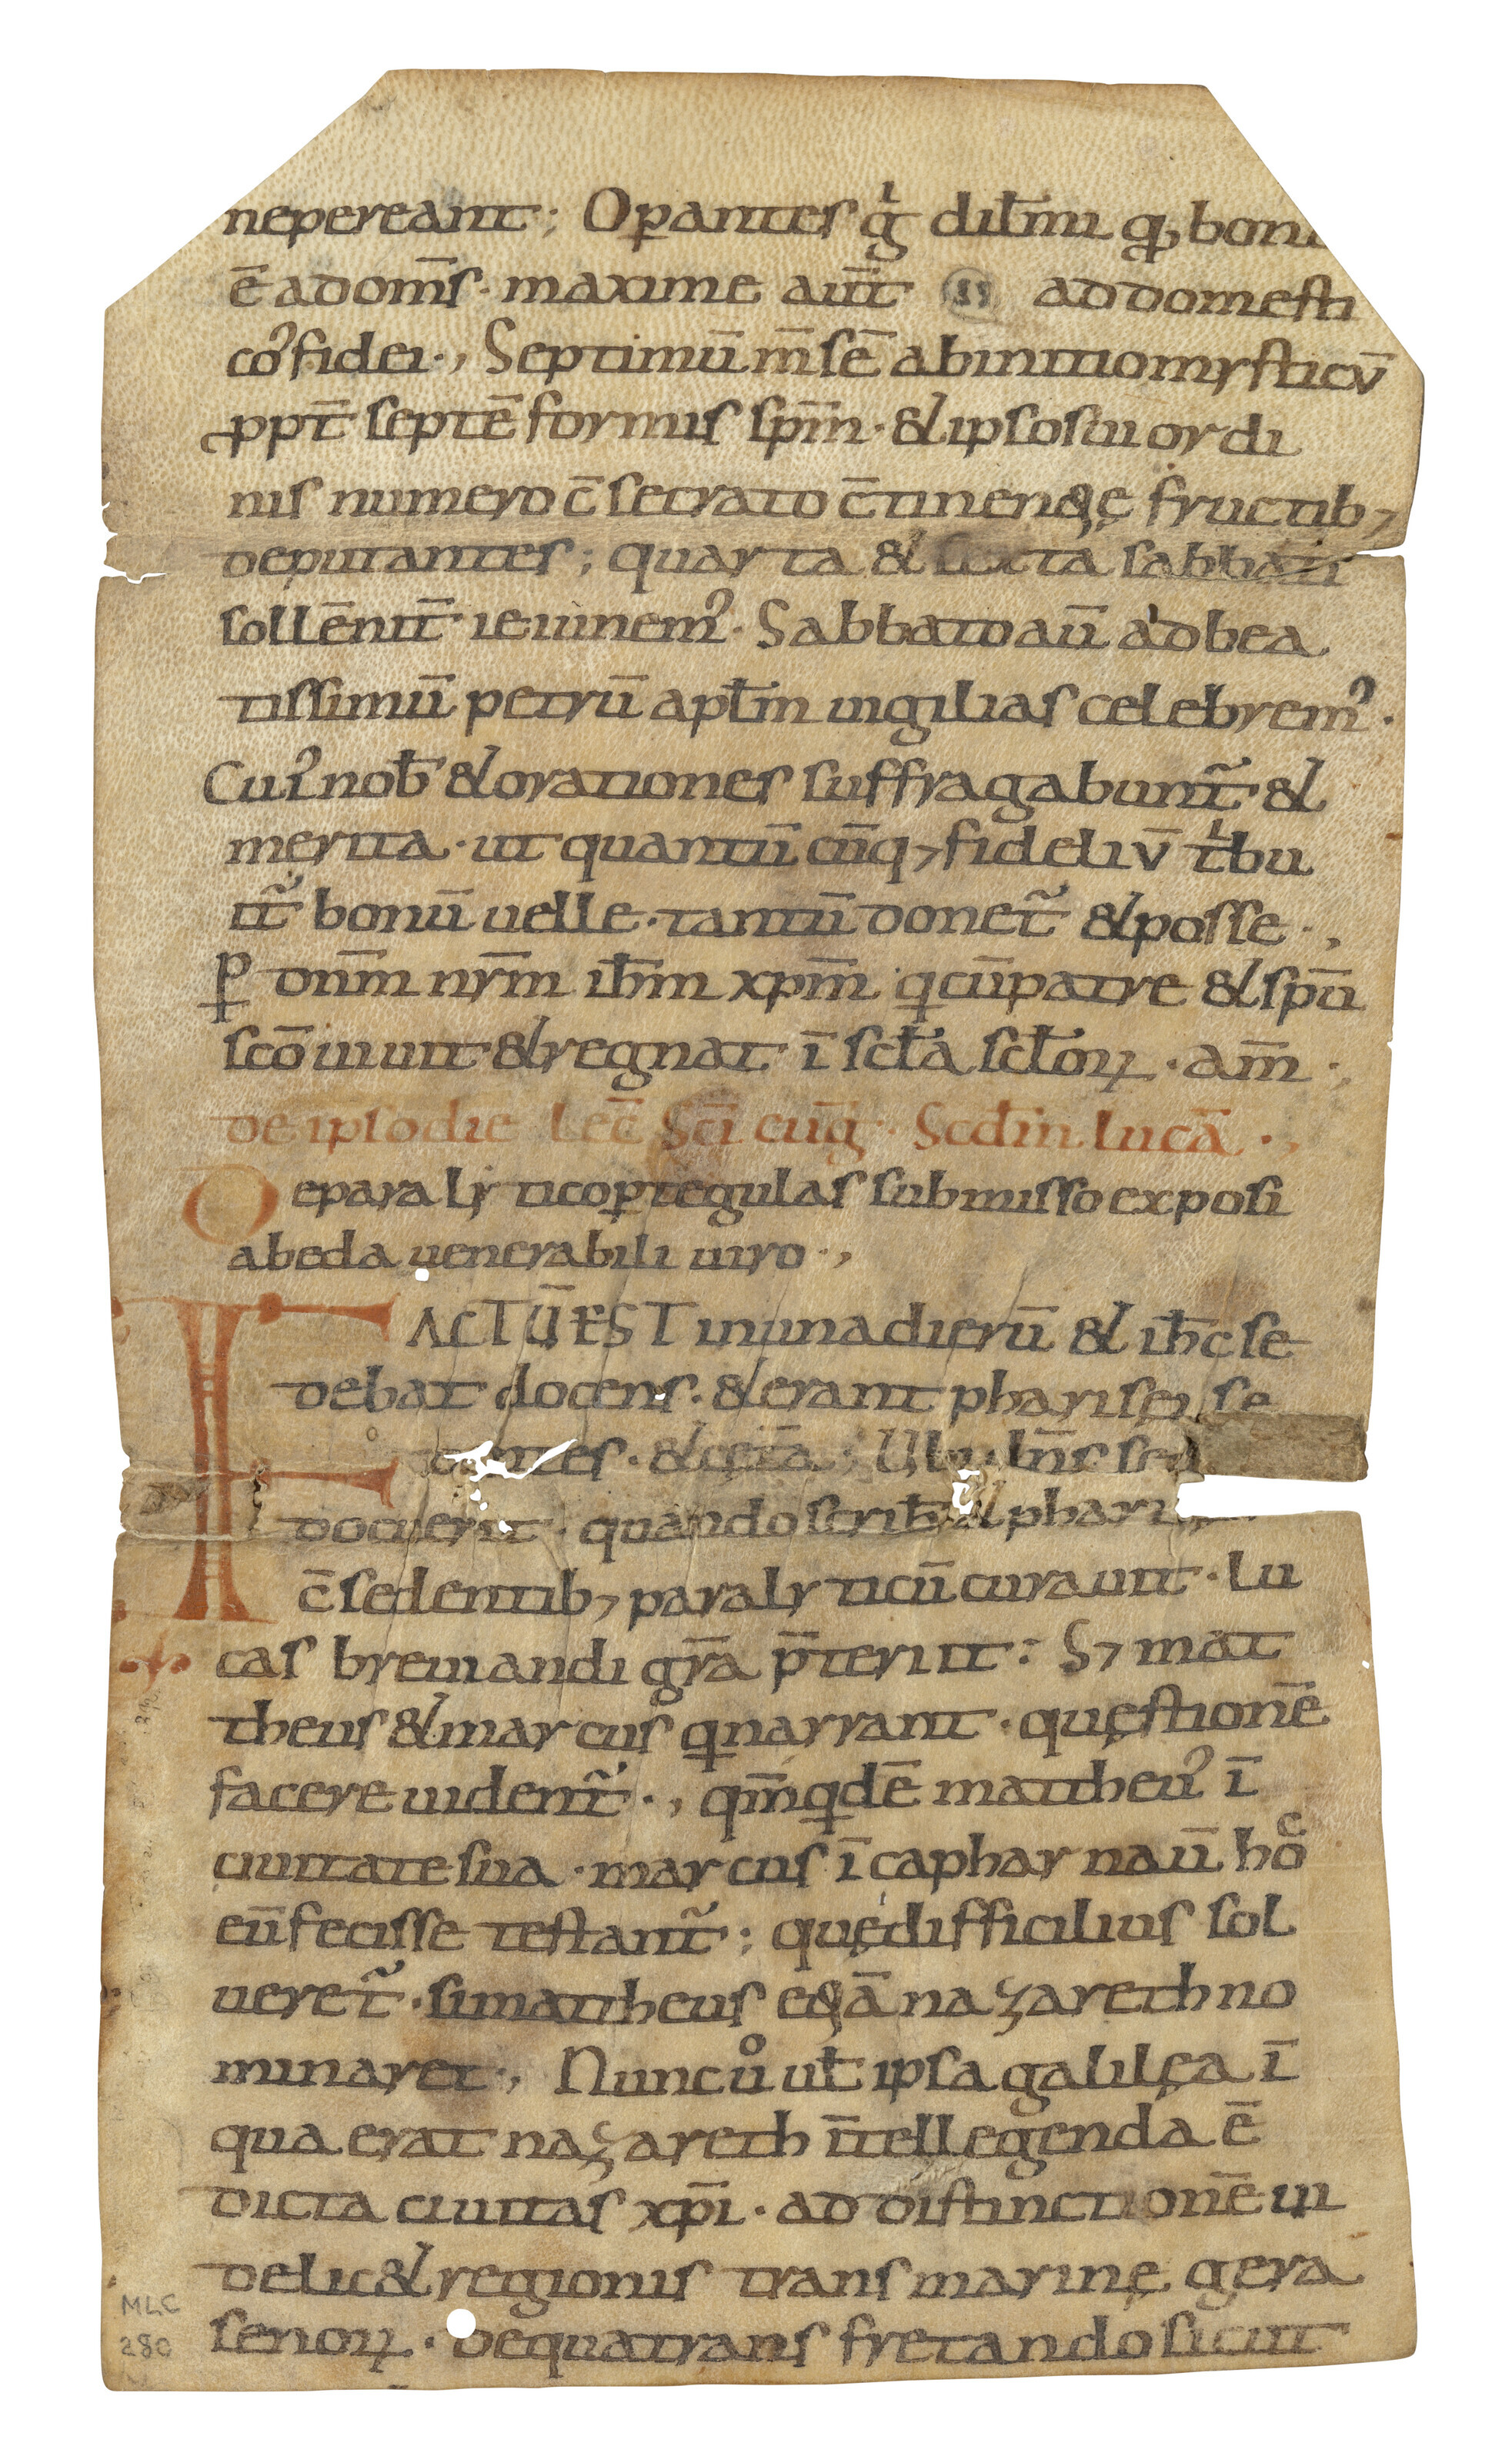 nepereant; Opantes gͥ dil̅mi qđ bonū
ē ad om̅s· maxime aut̅ 11 ad domesti
coꝰ fidei·, Septimū m̅sē ab initio mysticū
ꝓpt̅ septē formis sp̅m· & ipso sui ordi
nis numero c̅secrato c̅tinen&ę fructib;
deputantes; quarta & sexta sabbati
sollēnit̅ ieiunemꝰ· Sabbato aū ad bea
tissimū petrū apl̅m uigilias celebremꝰ·
Cuiꝰ nob̅ & orationes suffragabunt̃ &
merita· ut quantū cūq; fideliū tͥbu
it̃ bonū uelle· tantū donet̃ & posse·,
ꝑ dn̅m nr̅m ih̅m xp̅m q cū patre & sp̅u
sc̅o uiuit & regnat ī scl̅a scl̅oꝝ· am̅·,
de ipso die lec̅ Sc̅i eug̅· Scd̅m lucā·,
De paralytico ꝑ tegulas submisso exposi
a beda uenerabili uiro·,
FACTŪ EST in una dierū & ih̅c se
debat docens· & erant pharisei se
dentes· & cet̅a; Ubi dn̅s sed
docuerit· quando scrib̅ & phari
c̅sedentib; paralyticū curauit· lu
cas breuiandi gr̅a p̅teriit: S; mat
theus & marcus q narrant· quęstionē
facere uident̃·, qm̅ qdē mattheuꝰ ī
ciuitate sua· marcus ī capharnaū hoͨ
eū fecisse testant̃; quę difficilius sol
ueret̃· si mattheus &iā nazareth no
minaret·, Nunc uͦ ut̅ ipsa galilęa ī
qua erat nazareth īt̅ellegenda ē
dicta ciuitas xp̅i· ad distinctionē ui
delic& regionis trans marinę gera
senoꝝ· De qua trans fretando sicut
MLC
280